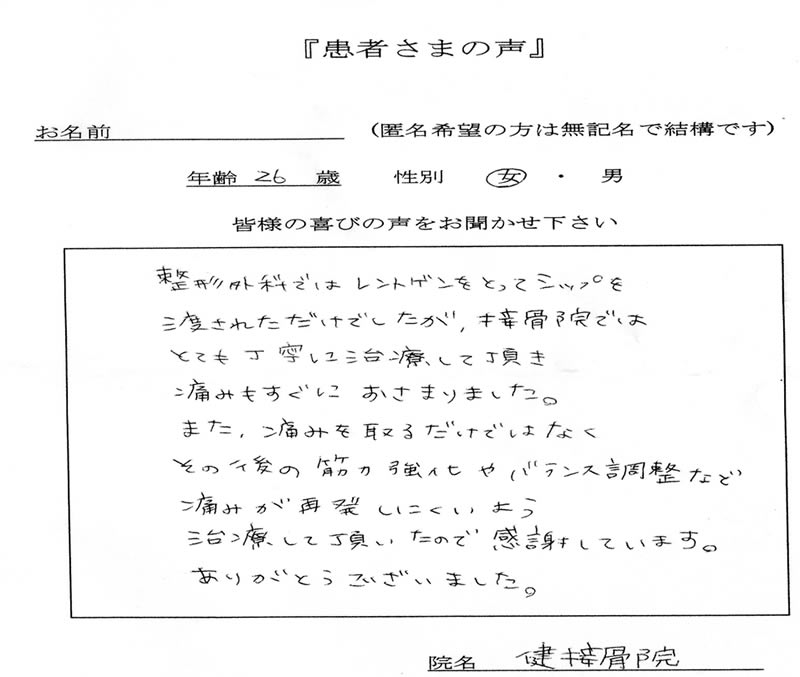 『患者さまの声』
お名前 (匿名希望の方は無記名で結構です)
年齢 26 歳 性別 女 ・ 男
皆様の喜びの声をお聞かせ下さい
整形外科ではレントゲンをとってシップを
渡されただけでしたが,接骨院では
とても丁寧に治療して頂き
痛みもすぐに おさまりました。
また,痛みを取るだけではなく
その後の筋力強化やバランス調整など
痛みが再発しにくいよう
治療して頂いたので感謝しています。
ありがとうございました。
院名 健接骨院